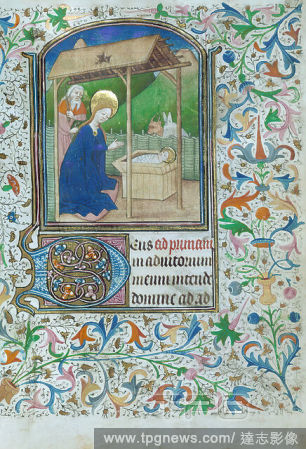 Deus ad primam
in adiutorium
meum intende
domine ad ad
www.tpgnews.com/ 達志影像